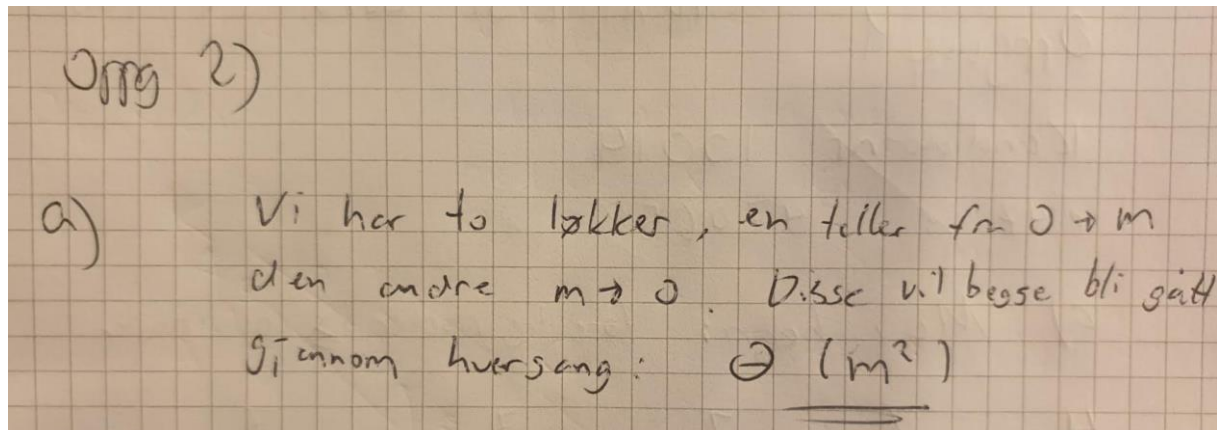 Oppg 2)
a) Vi har to løkker, en teller fra 0 → m
den andre m → 0. Disse vil begge bli gått
gjennom hversang: Θ (m²)